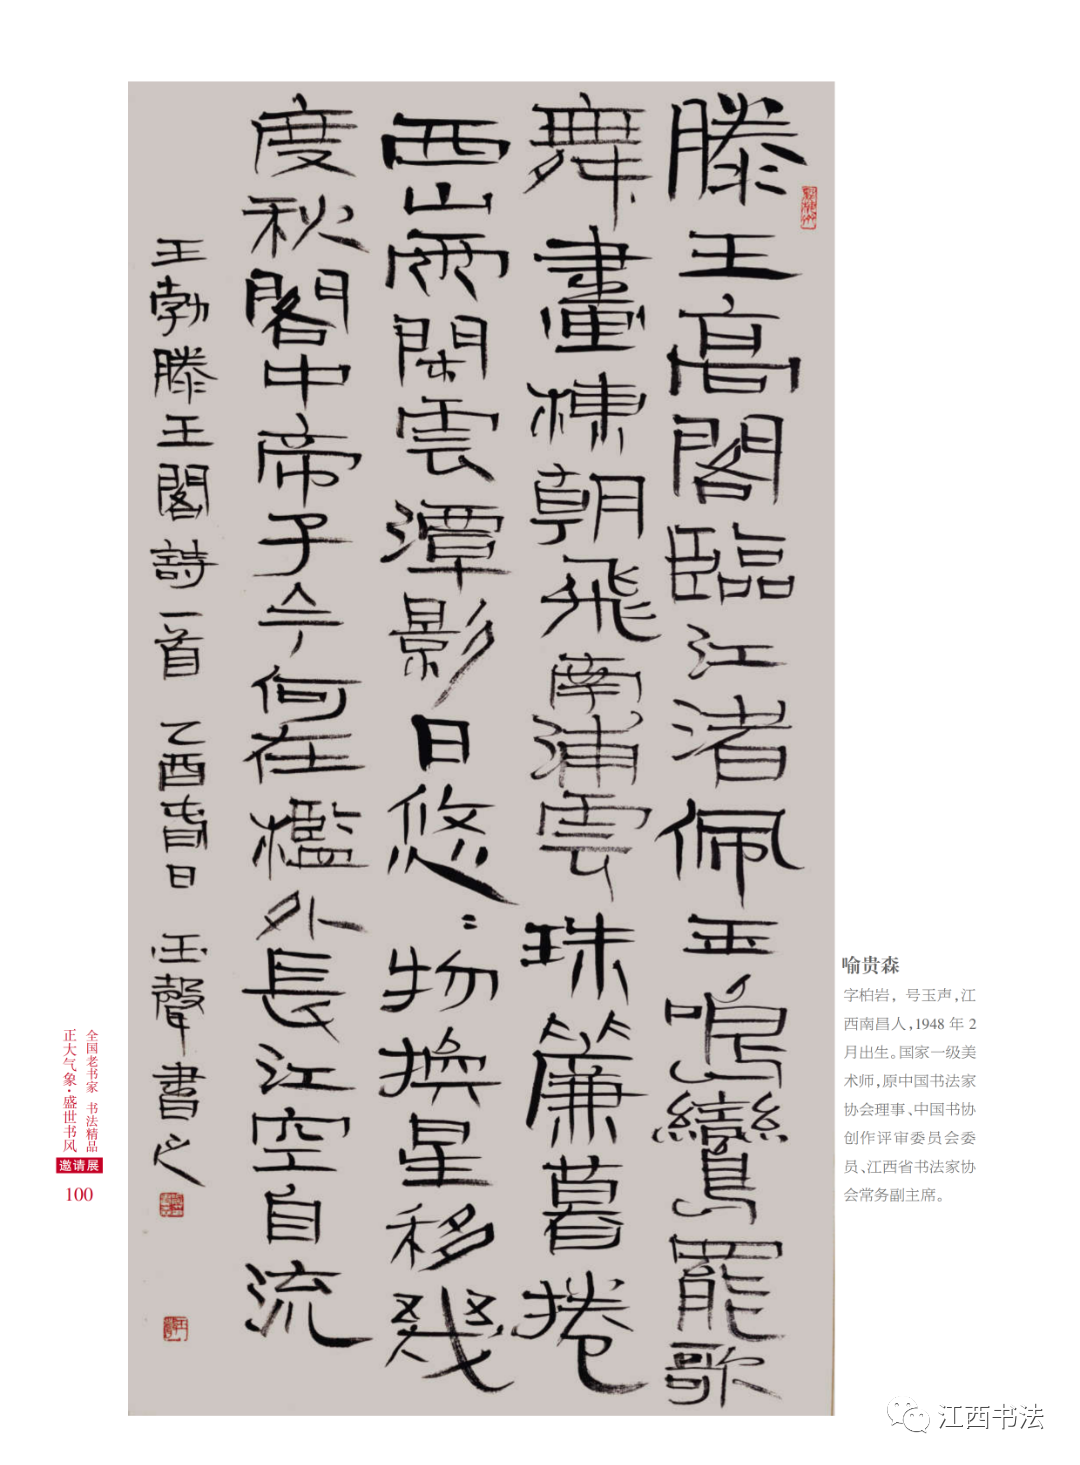 滕王高閣臨江渚佩玉鳴鸞罷歌
舞畫棟朝飛南浦雲珠簾暮捲
西山雨閑雲潭影日悠〻物換星移幾
度秋閣中帝子今何在檻外長江空自流
王勃滕王閣詩一首 乙酉春日 玉聲書之
喻贵森
字柏岩，号玉声，江
西南昌人，1948 年 2
月出生。国家一级美
术师，原中国书法家
协会理事、中国书协
创作评审委员会委
员、江西省书法家协
会常务副主席。
全国老书家 书法精品
正大气象·盛世书风
邀请展
100
江西书法